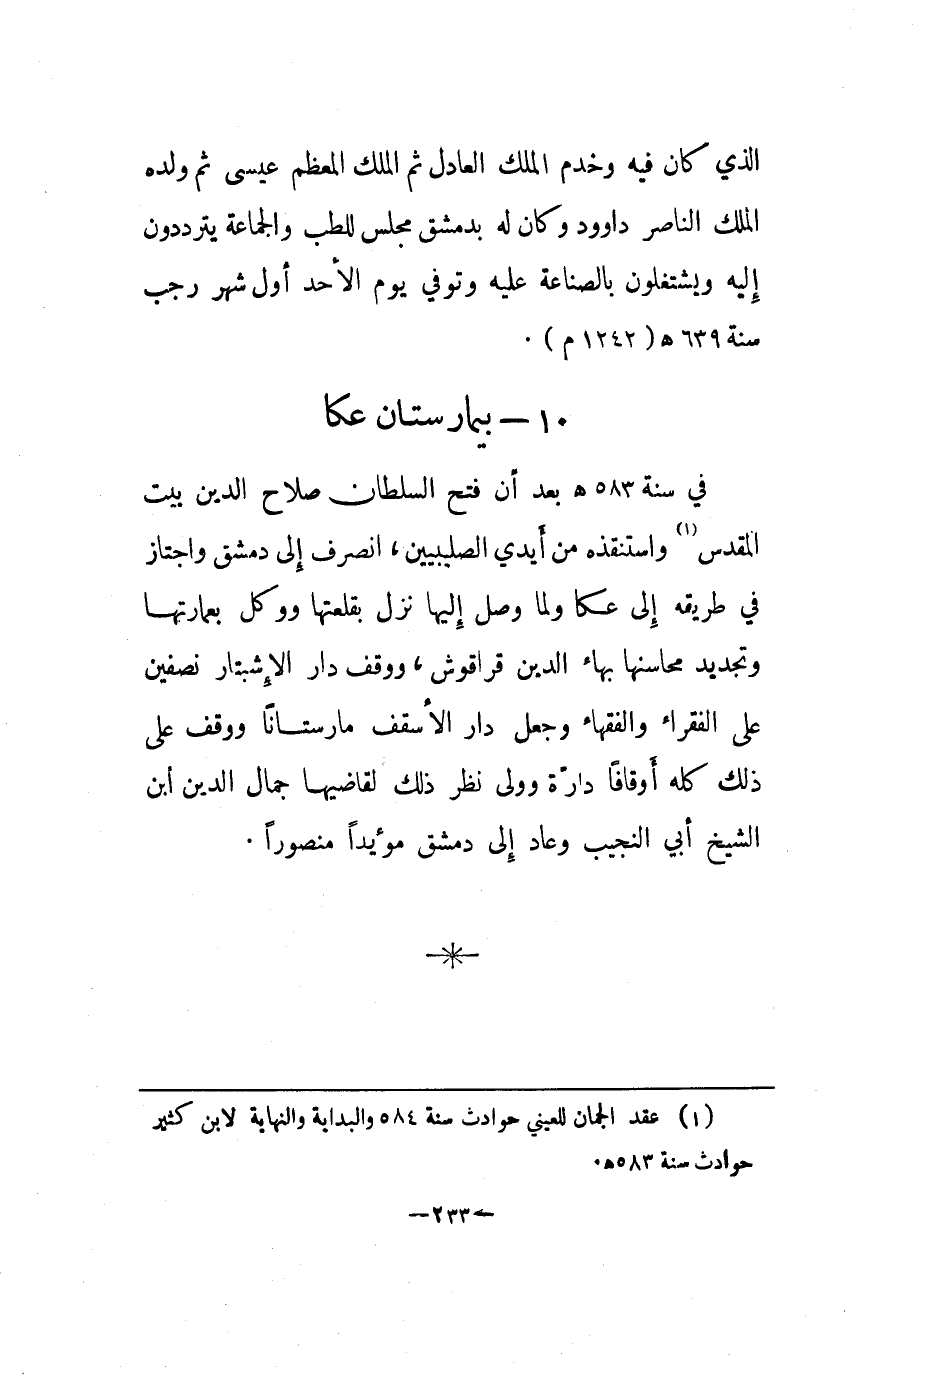 الذي كان فيه وخدم الملك العادل ثم الملك المعظم عيسى ثم ولده
الملك الناصر داوود وكان له بدمشق مجلس للطب والجماعة يترددون
إِليه ويشتغلون بالصناعة عليه وتوفي يوم الأحد أول شهر رجب
سنة ٦٣٩ ه ( ١٢٤٢ م ) .
١٠ – بيمارستان عكا
في سنة ٥٨٣ ه بعد أن فتح السلطان صلاح الدين بيت
المقدس (١) واستنقذه من أَيدي الصليبيين ، انصرف إِلى دمشق واجتاز
في طريقه إِلى عكا ولما وصل إِليها نزل بقلعتها ووكل بعمارتها
وتجديد محاسنها بهاء الدين قراقوش ، ووقف دار الإِشبتار نصفين
على الفقراء والفقهاء وجعل دار الأسقف مارستاناً ووقف على
ذلك كله أَوقافًا دارّة وولى نظر ذلك لقاضيها جمال الدين أبن
الشيخ أبي النجيب وعاد إِلى دمشق مؤيداً منصوراً .
(١) عقد الجمان للعيني حوادث سنة ٥٨٤ والبداية والنهاية لابن كثير
حوادث سنة ٥٨٣ه.
–٢٣٣–